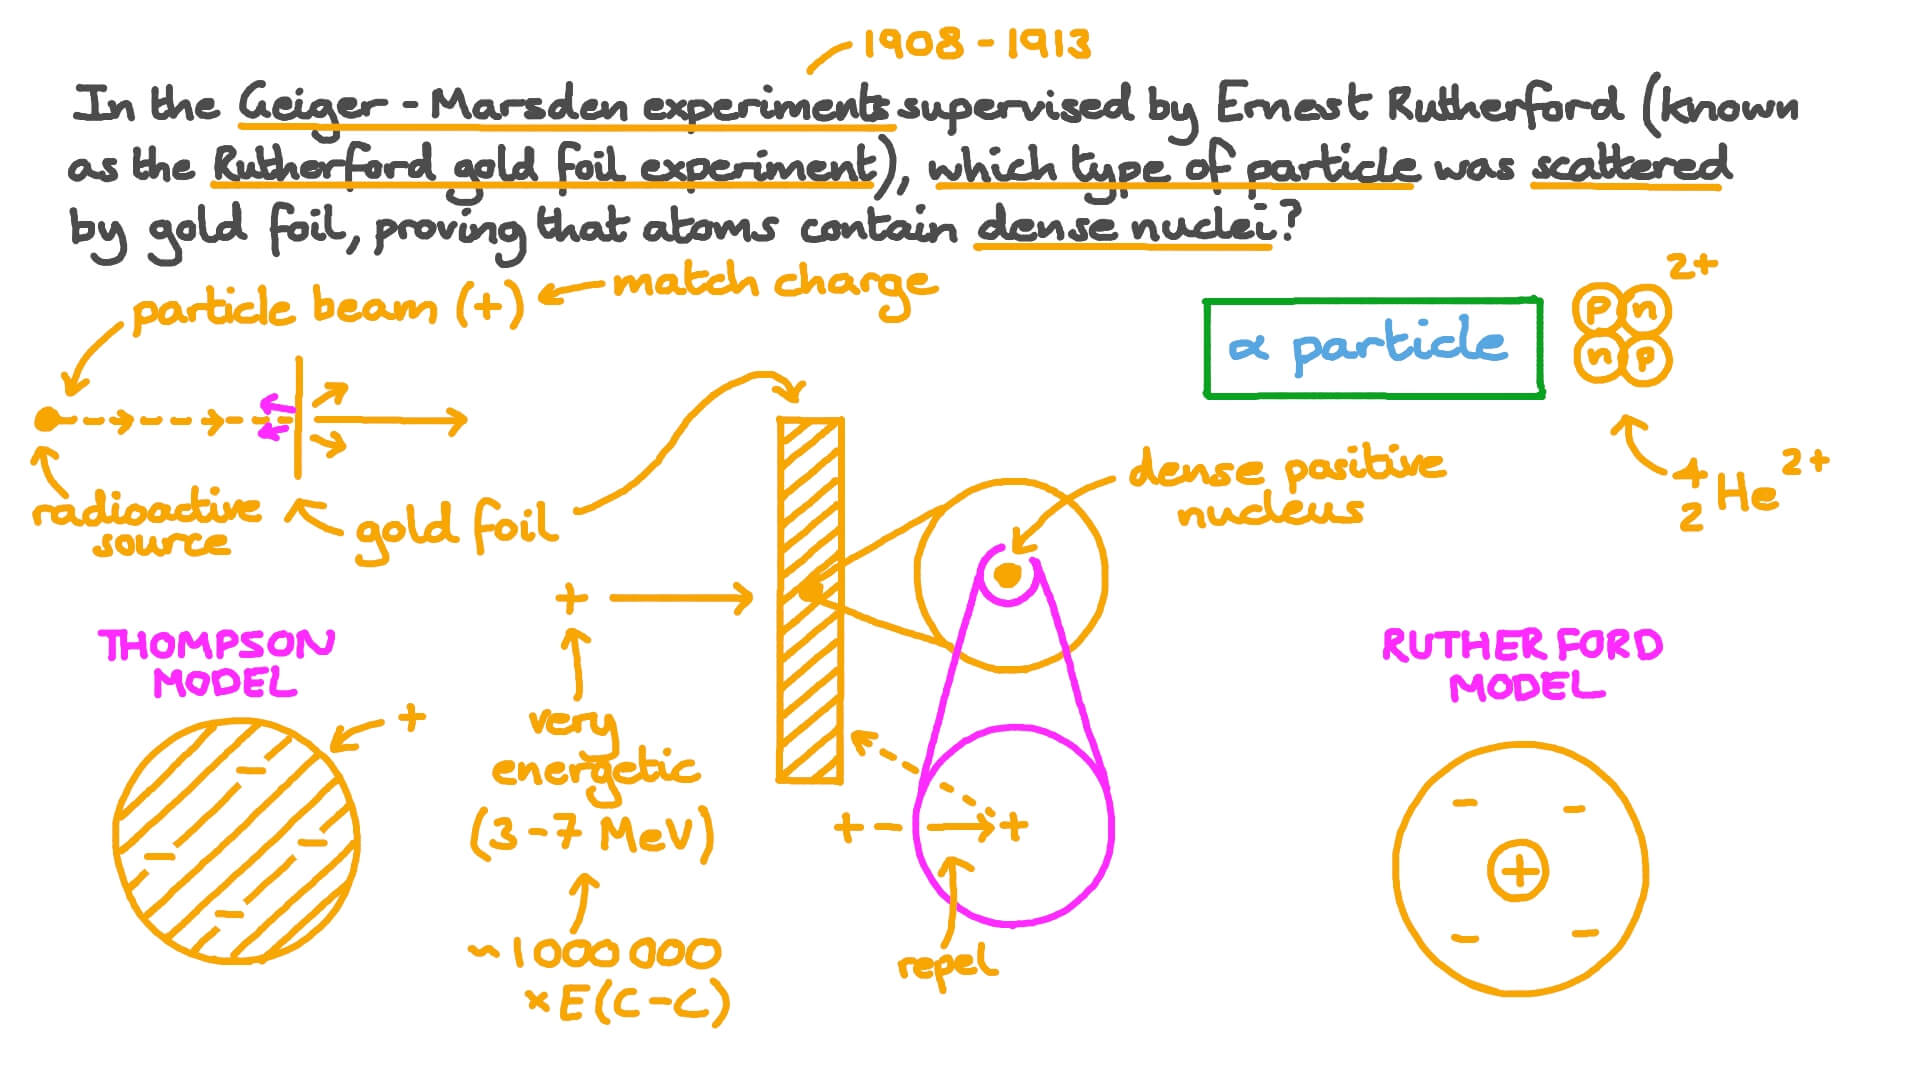 1908 - 1913
In the Geiger - Marsden experiments supervised by Ernest Rutherford (known
as the Rutherford gold foil experiment), which type of particle was scattered
by gold foil, proving that atoms contain dense nuclei?
particle beam (+)
match charge
α particle
2+
p n
n p
radioactive
source
gold foil
dense positive
nucleus
4
2 He 2+
+
THOMPSON
MODEL
+
very
energetic
(3-7 MeV)
~1000 000
× E(C-C)
+
+
repel
RUTHERFORD
MODEL
+